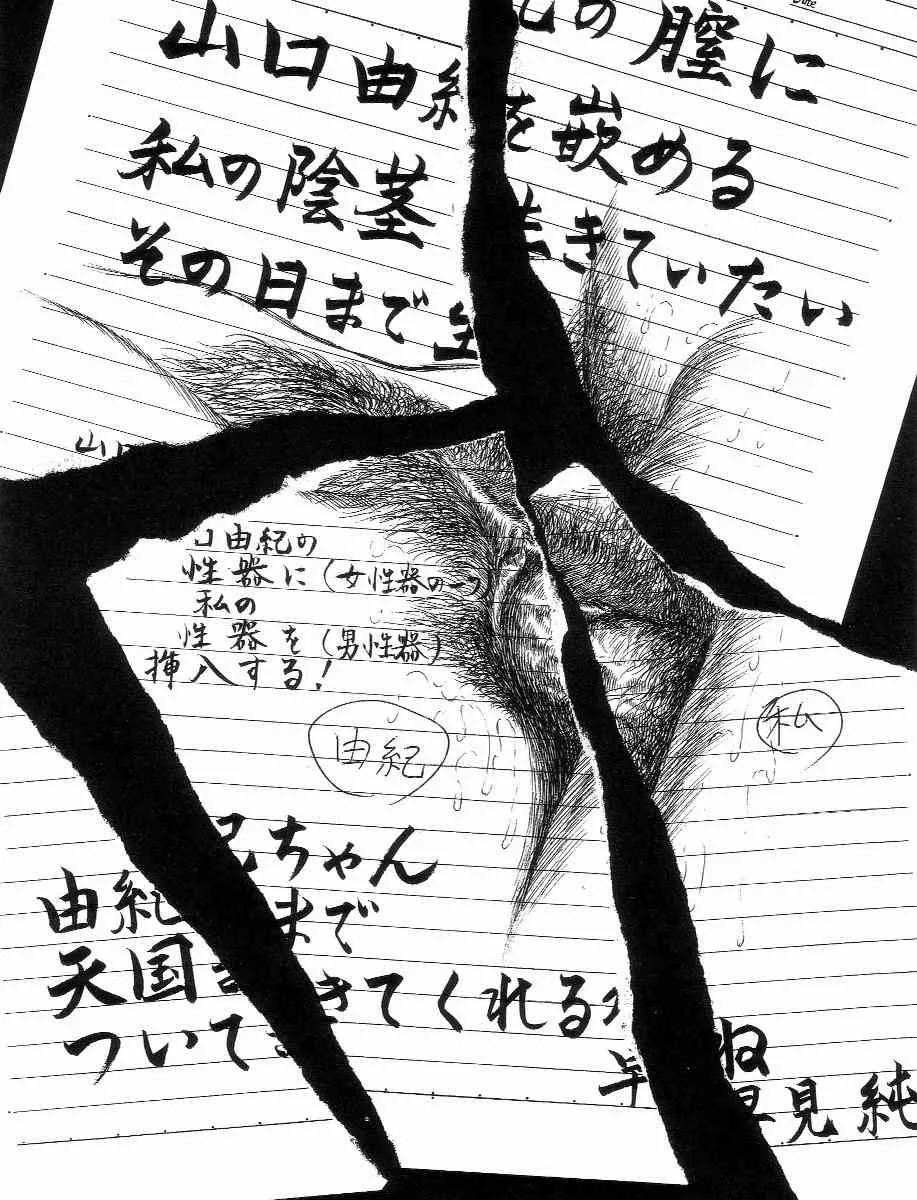 山口由紀の膣に
私の陰茎を嵌める
その日まで生きていたい
山口
口由紀の
性器に(女性器の一つ)
私の
性器を(男性器)
挿入する!
由紀
私
紀ちゃん
由紀 まで
天国 きてくれる
ついて
ね
早見純